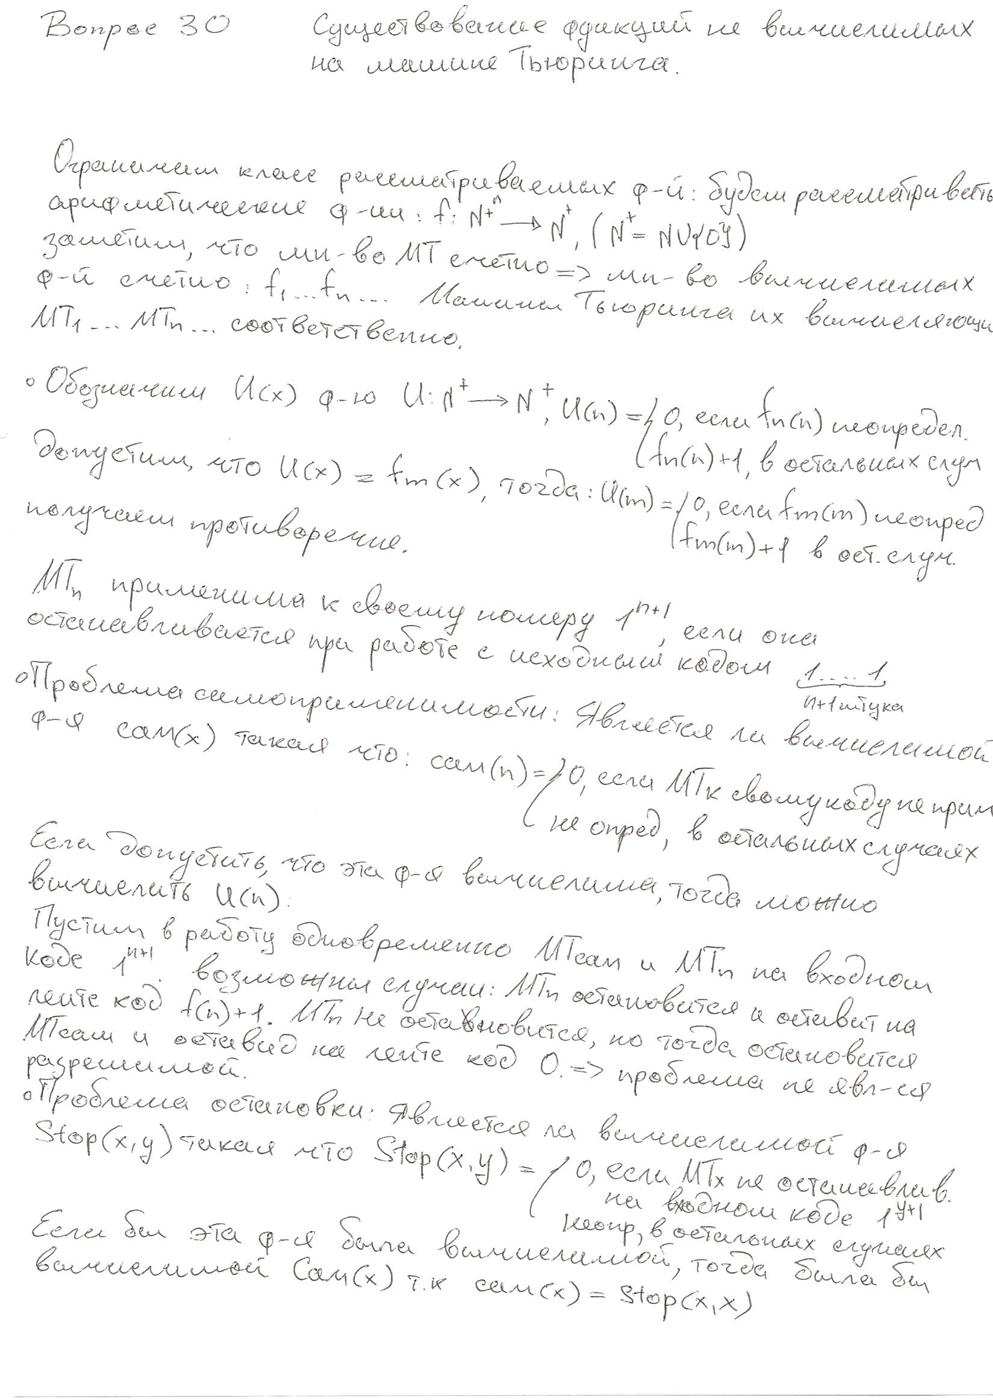 Вопрос 30 Существование функций не вычислимых
на машине Тьюринга.
Ограничим класс рассматриваемых ф-й: будем рассматривать
арифметические ф-ии: f: N⁺ⁿ → N⁺, (N⁺ = N∪{0})
заметим, что мн-во МТ счетно => мн-во вычислимых
ф-й счетно: f₁...fn... Машины Тьюринга их вычисляющи
МТ₁... МТn... соответственно.
◦ Обозначим U(x) ф-ю U: N⁺ → N⁺, U(n) = { 0, если fn(n) неопредел.
fn(n)+1, в остальных случ
Допустим, что U(x) = fm(x), тогда: U(m) = { 0, если fm(m) неопред
fm(m)+1 в ост. случ.
получаем противоречие.
МТn применима к своему номеру 1ⁿ⁺¹, если она
останавливается при работе с исходным кодом 1....1
n+1 штука
◦ Проблема самоприменимости: Является ли вычислимой
ф-я сам(x) такая что: сам(n) = { 0, если МТ к свому коду не прим
не опред, в остальных случаях
Если допустить, что эта ф-я вычислима, тогда можно
вычислить U(n):
Пустим в работу одновременно МТсам и МТn на входном
коде 1ⁿ⁺¹. возможны случаи: МТn остановится и оставит на
ленте код f(n)+1. МТn не остановится, но тогда остановится
МТсам и оставид на ленте код 0. => проблема не явл-ся
разрешимой.
◦ Проблема остановки: Является ли вычислимой ф-я
Stop(x,y) такая что Stop(x,y) = { 0, если МТx не останавлив.
на входном коде 1ʸ⁺¹
неопр, в остальных случаях
Если бы эта ф-я была вычислимой, тогда была бы
вычислимой Сам(x) т.к сам(x) = Stop(x,x)